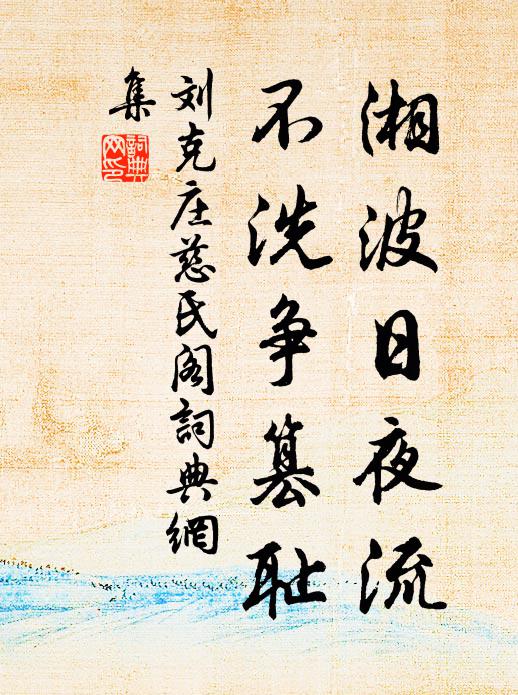 湘波日夜流
不洗争篡耻
刘克庄慈氏阁詞典網
集
詞典网印